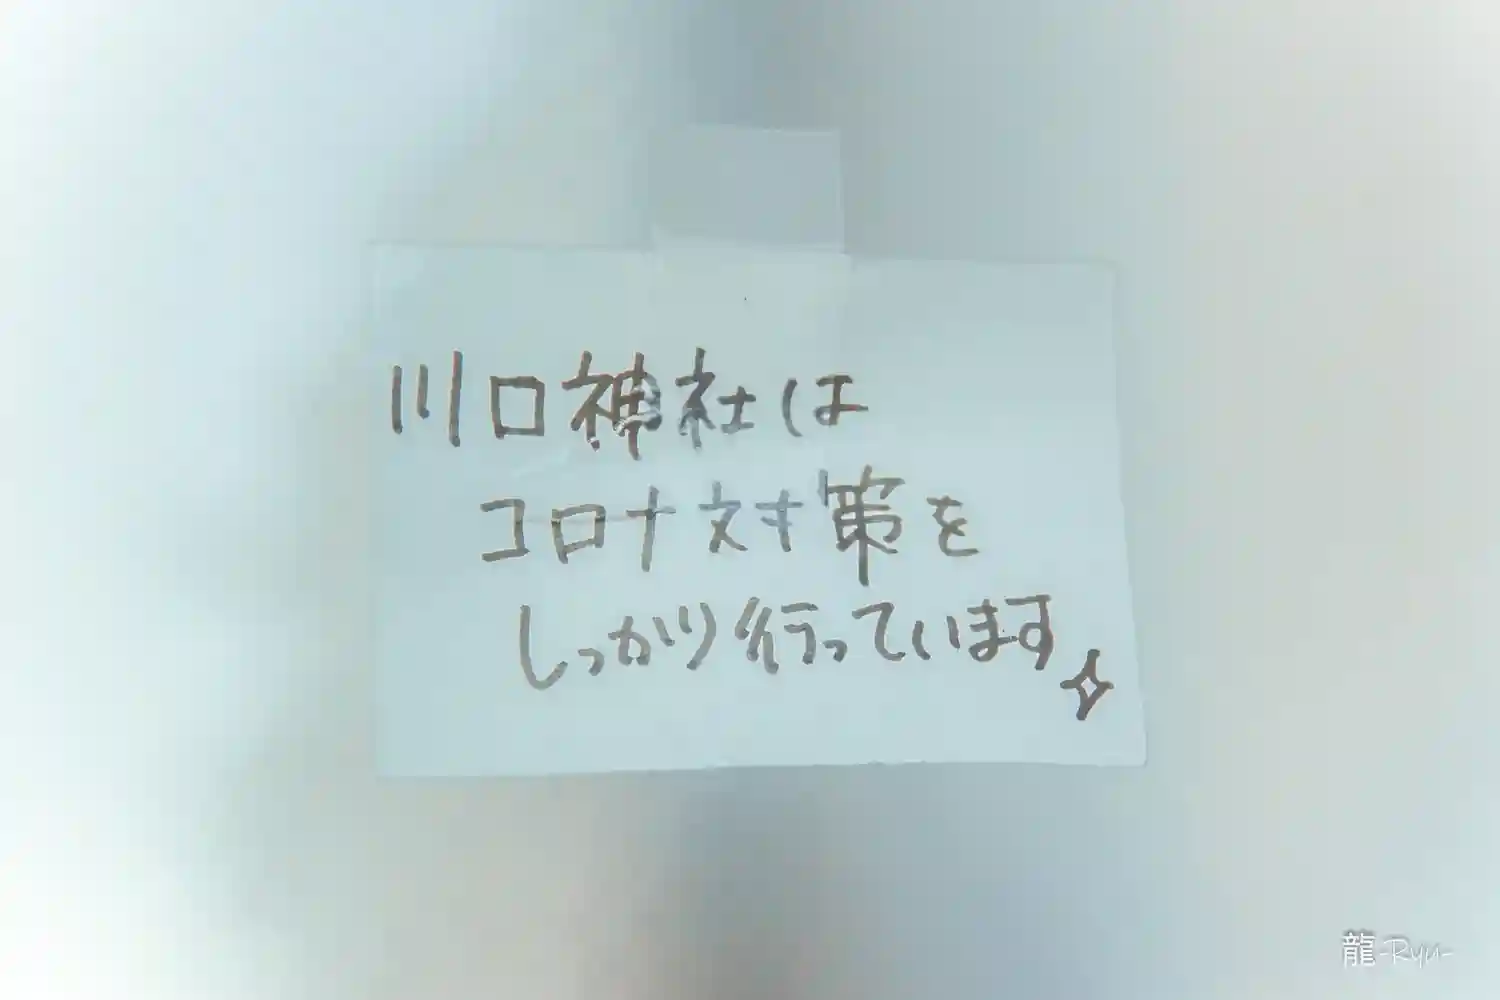 川口神社は
コロナ対策を
しっかり行っています
龍-Ryu-